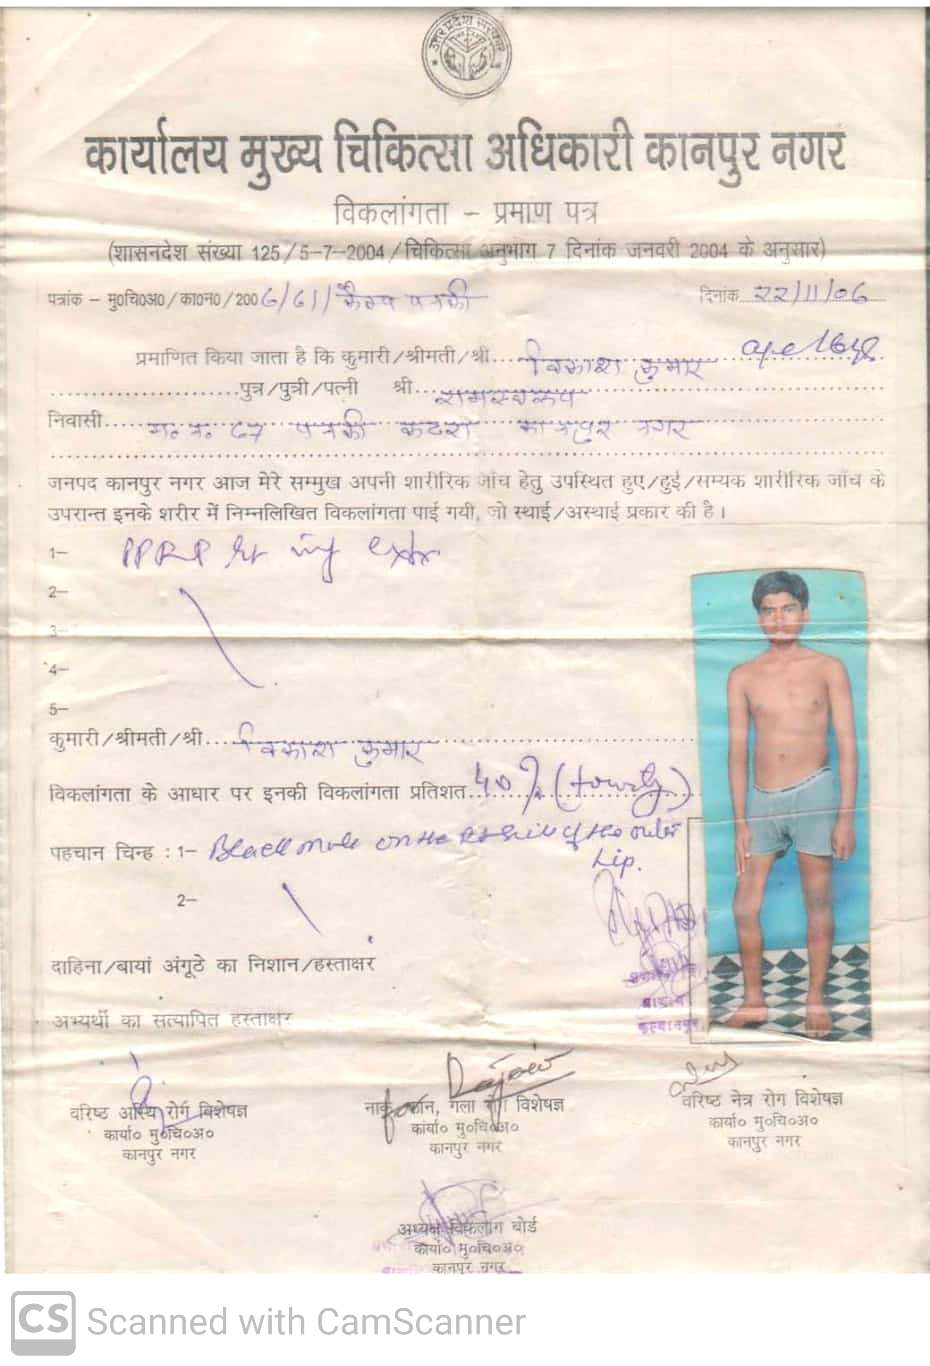 उत्तर प्रदेश सरकार
कार्यालय मुख्य चिकित्सा अधिकारी कानपुर नगर
विकलांगता - प्रमाण पत्र
(शासनदेश संख्या 125/5-7-2004/चिकित्सा अनुभाग 7 दिनांक जनवरी 2004 के अनुसार)
पत्रांक - मु०चि०अ०/का०न०/2006/61/कैम्प पनकी दिनांक 22/11/06
प्रमाणित किया जाता है कि कुमारी/श्रीमती/श्री विकाश कुमार age 16
पुत्र/पुत्री/पत्नी श्री रामस्वरूप
निवासी पनकी कटरा कानपुर नगर
जनपद कानपुर नगर आज मेरे सम्मुख अपनी शारीरिक जॉंच हेतु उपस्थित हुए/हुई/सम्यक शारीरिक जॉंच के
उपरान्त इनके शरीर में निम्नलिखित विकलांगता पाई गयी, जो स्थाई/अस्थाई प्रकार की है।
1- PPRP
2-
3-
4-
5-
कुमारी/श्रीमती/श्री विकाश कुमार
विकलांगता के आधार पर इनकी विकलांगता प्रतिशत 40%
पहचान चिन्ह : 1- Black mole on the
Lip.
2-
दाहिना/बायां अंगूठे का निशान/हस्ताक्षर
अभ्यर्थी का सत्यापित हस्ताक्षर
वरिष्ठ अस्थि रोग विशेषज्ञ
कार्या० मु०चि०अ०
कानपुर नगर
नाक, कान, गला रोग विशेषज्ञ
कार्या० मु०चि०अ०
कानपुर नगर
वरिष्ठ नेत्र रोग विशेषज्ञ
कार्या० मु०चि०अ०
कानपुर नगर
अध्यक्ष विकलांग बोर्ड
कार्या० मु०चि०अ०
कानपुर नगर
CS Scanned with CamScanner